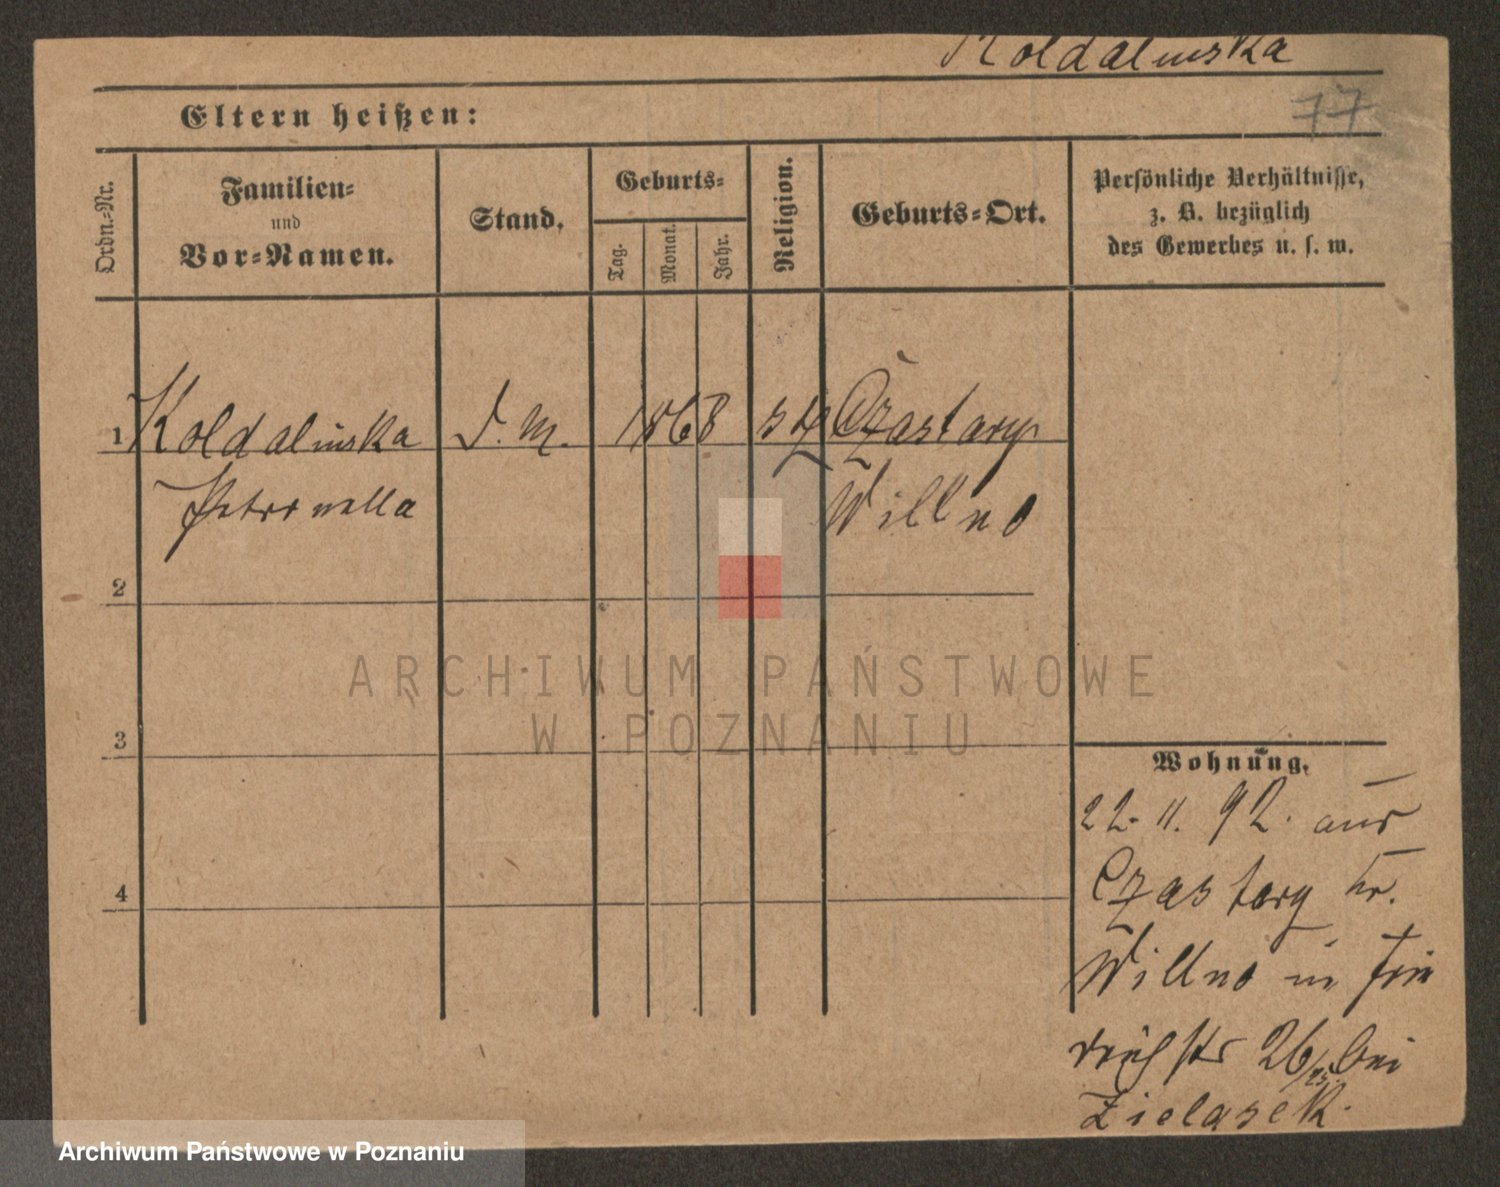 Koldalinska
77
Eltern heißen:
Ordn.-Nr.
Familien-
und
Vor-Namen.
Stand.
Geburts-
Tag.
Monat.
Jahr.
Religion.
Geburts-Ort.
Persönliche Verhältnisse,
z. B. bezüglich
des Gewerbes u. s. w.
1 Koldalinska D. M. 1868 Czastary
Petronella Willno
2
3
4
ARCHIWUM PAŃSTWOWE
W POZNANIU
Wohnung.
22. 11. 92. aus
Czastary Kr.
Willno in Frie
drichstr 26 bei
Zielasek.
Archiwum Państwowe w Poznaniu